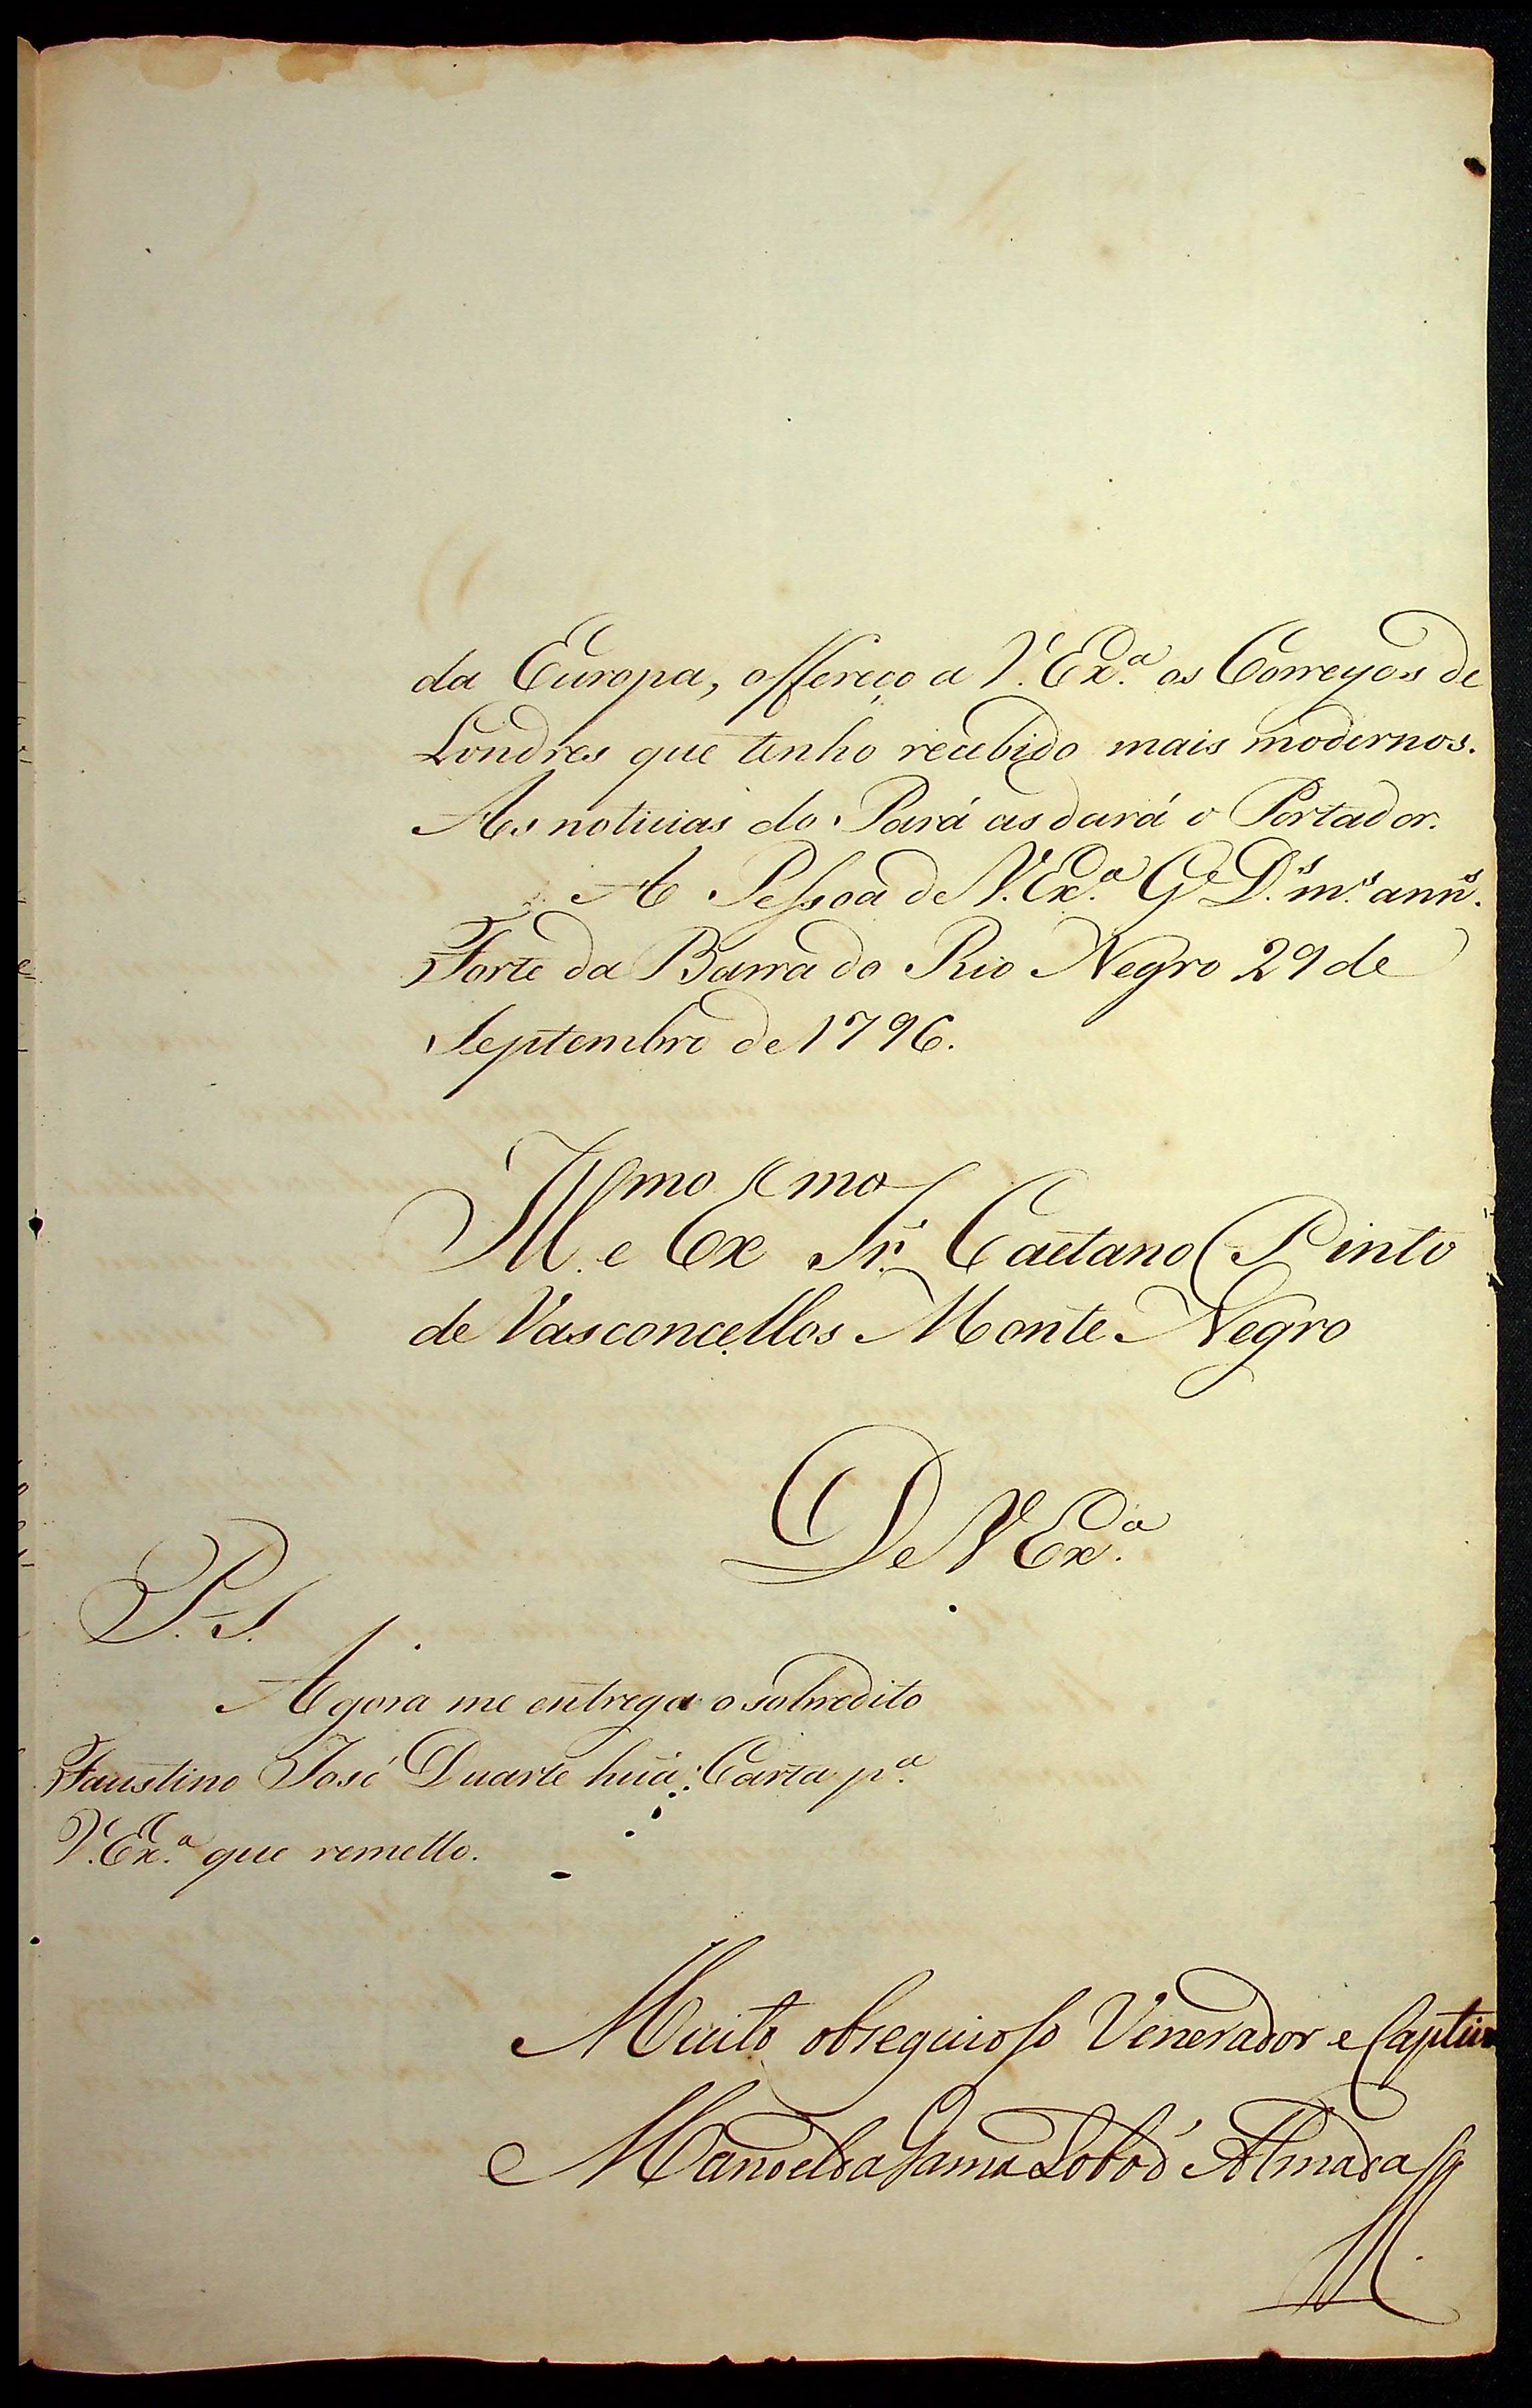 da Europa, offereço a V. Ex.ª os Correyos de
Londres que tenho recebido mais modernos.
As noticias do Pará as dará o Portador.
A Pessoa de V. Ex.ª G.e D.s m.s ann.s
Forte da Barra do Rio Negro 29 de
Septembro de 1796.
Ill.mo e Ex.mo Sr. Caetano Pinto
de Vasconcellos Monte Negro
De V Ex.ª
P. S.
Agora me entrega o sobredito
Faustino José Duarte huã Carta p.ª
V. Ex.ª que remetto.
Muito obsequioso Venerador e Captivo
Manoel da Gama Lobo d'Almada